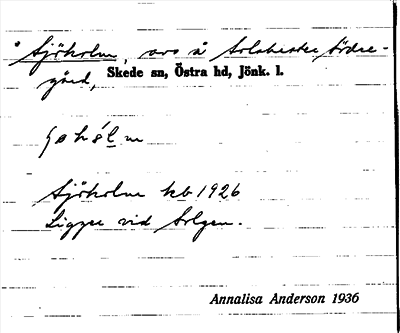 Sjöholm, avs å Solaberter Södre-
gård, Skede sn, Östra hd, Jönk. l.
Sjöholm kb 1926
Ligger vid Solgen.
Annalisa Anderson 1936